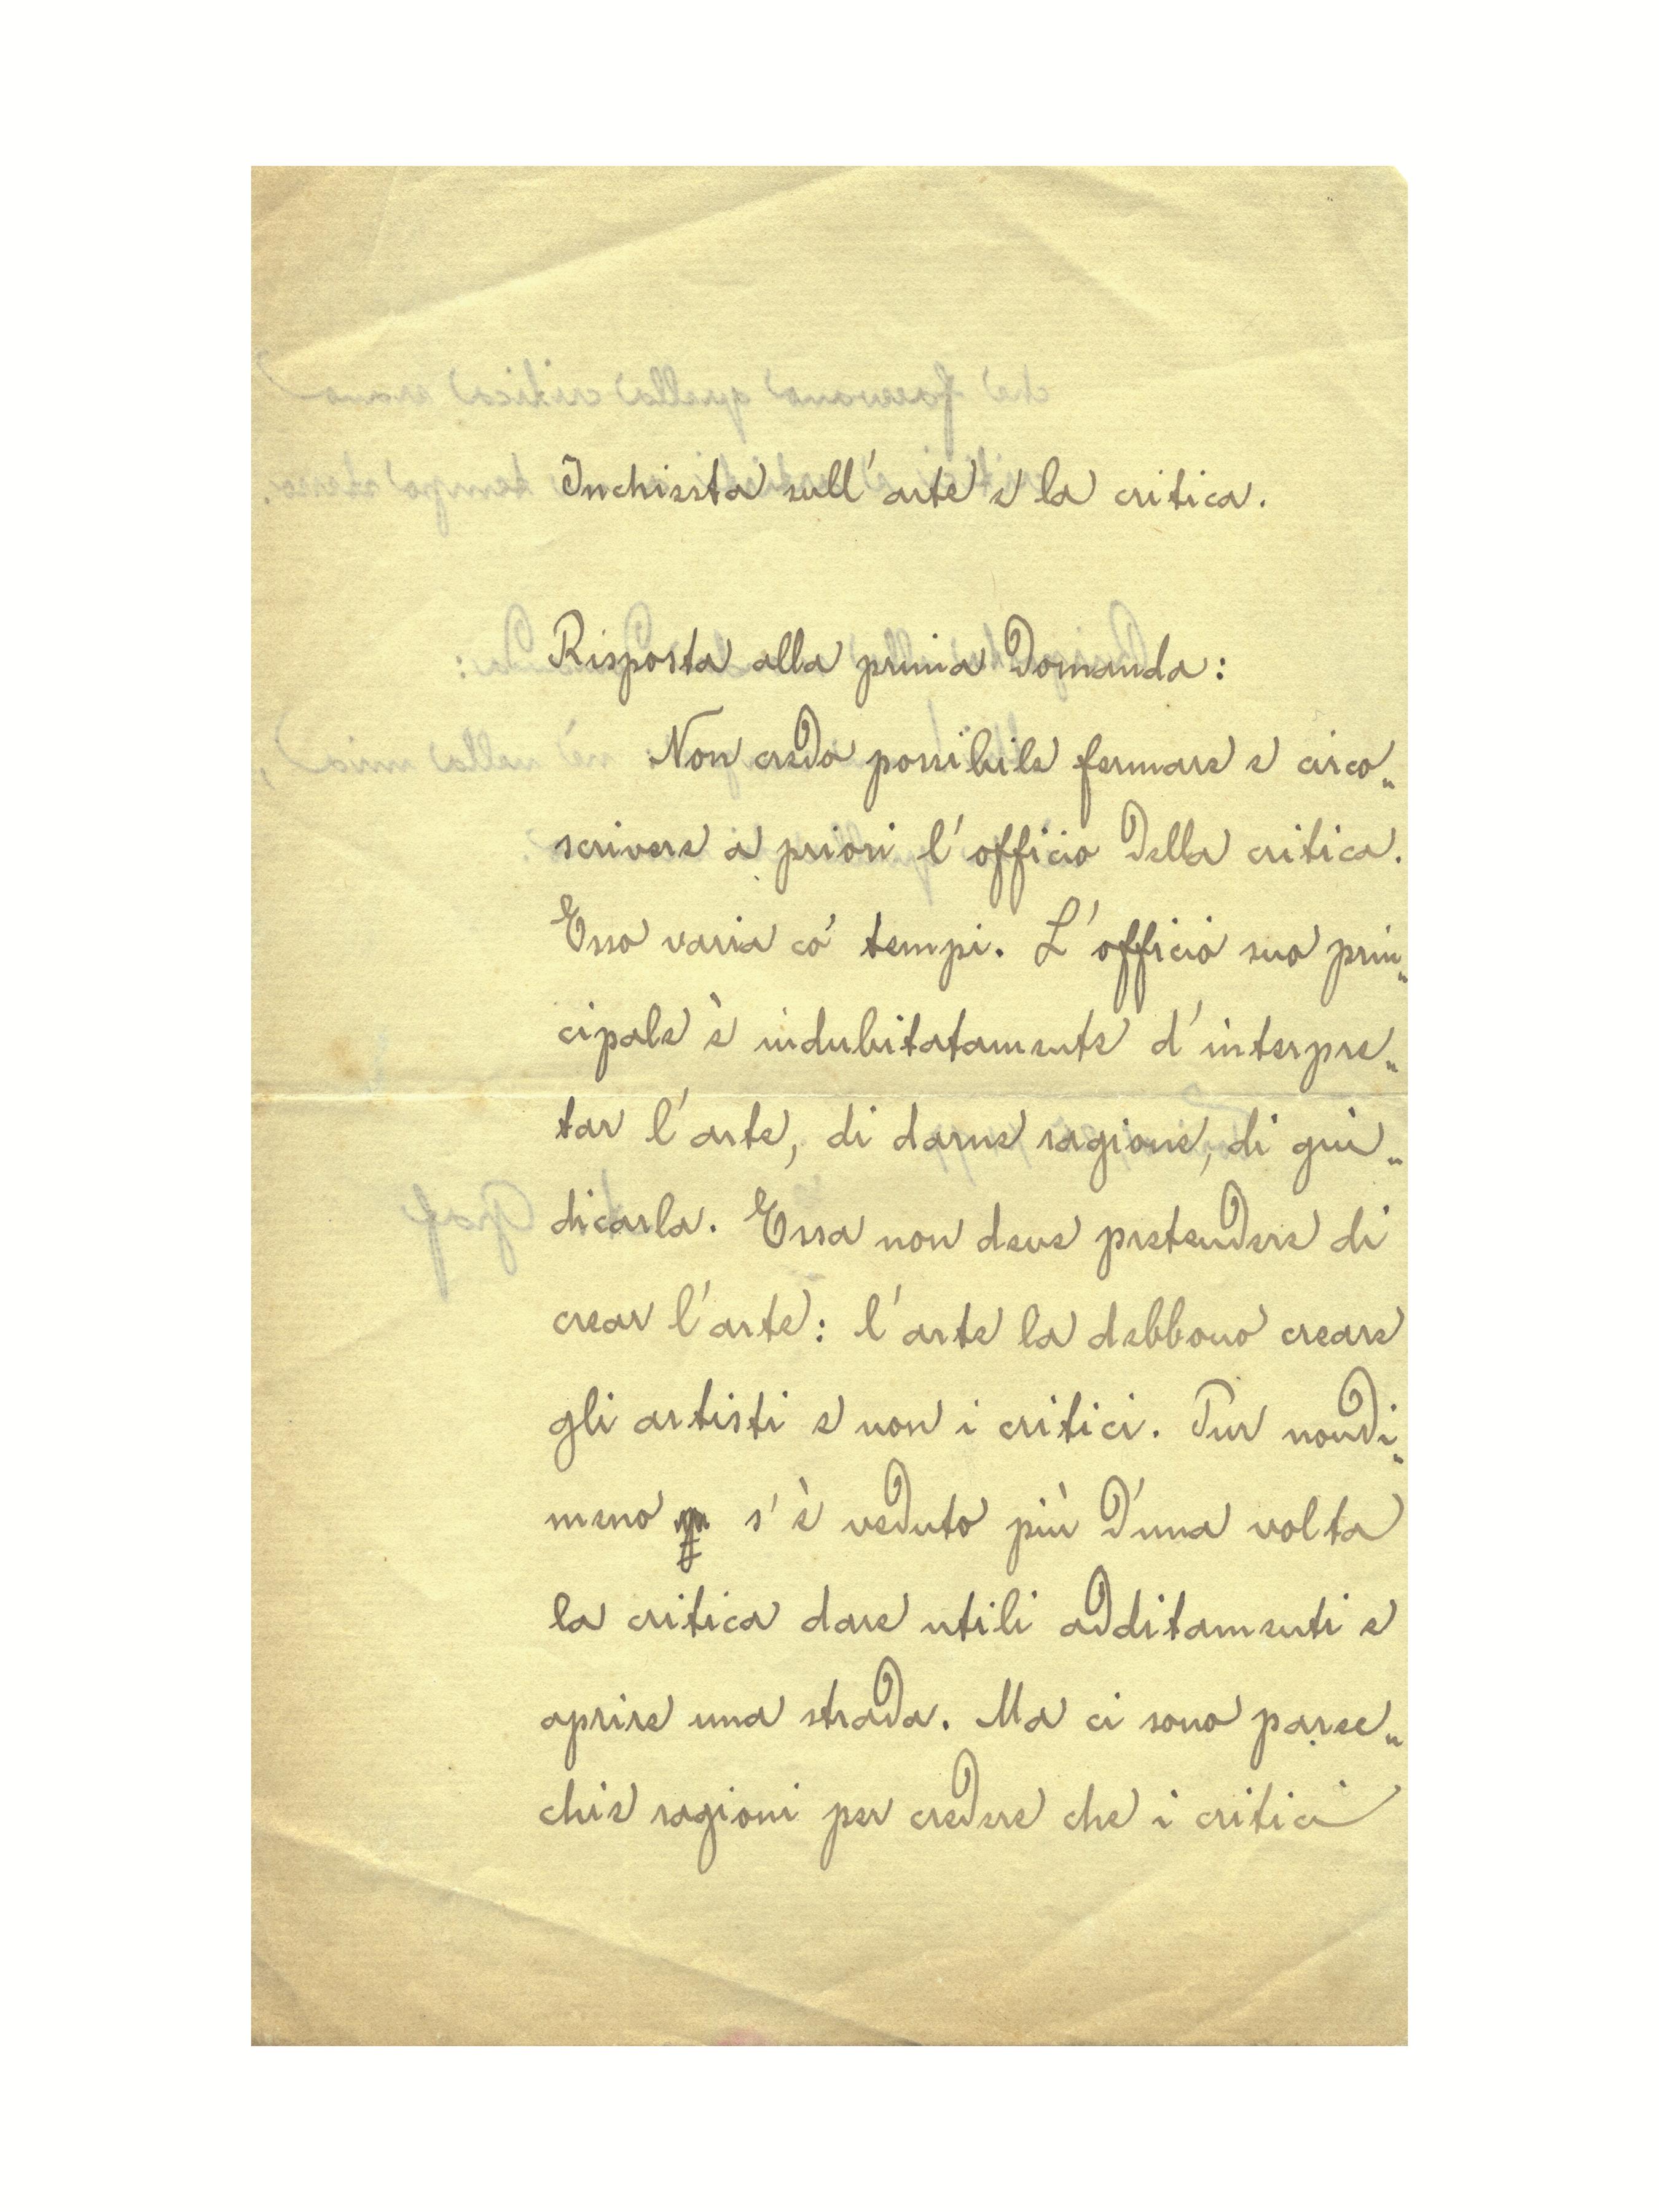 Inchiesta sull'arte e la critica.
Risposta alla prima Domanda:
Non credo possibile fermare e circo„
scrivere a priori l'officio della critica.
Esso varia co' tempi. L'officio suo prin„
cipale è indubitatamente d'interpre„
tar l'arte, di darne ragione, di giu„
dicarla. Essa non deve pretendere di
crear l'arte: l'arte la debbono creare
gli artisti e non i critici. Pur nondi„
meno s'è veduto più d'una volta
la critica dare utili additamenti e
aprire una strada. Ma ci sono parec„
chie ragioni per credere che i critici